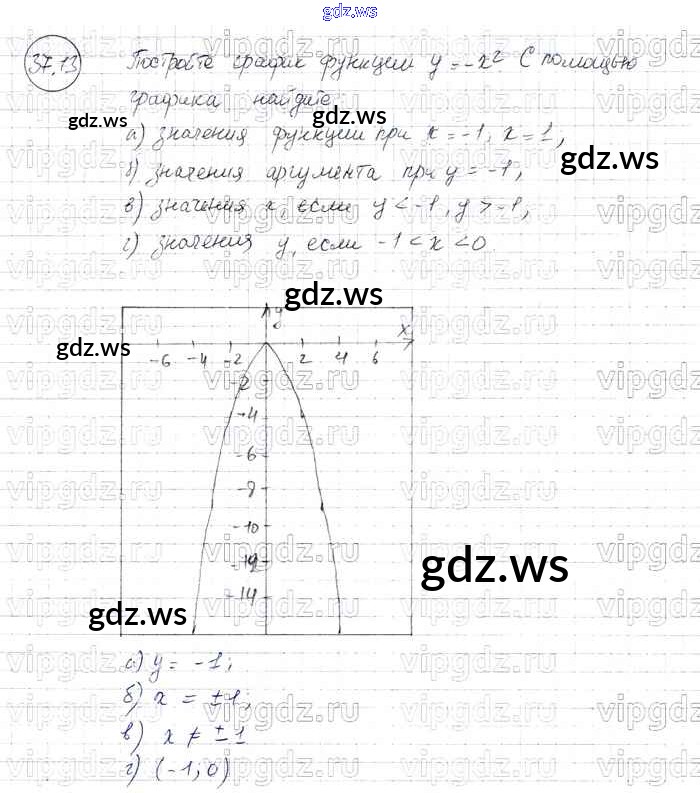 gdz.ws
37.13 Постройте график функции y = -x². С помощью
графика найдите:
а) значения функции при x = -1, x = 1;
б) значения аргумента при y = -1;
в) значения x, если y < -1, y > -1,
г) значения y, если -1 < x < 0.
gdz.ws
gdz.ws
gdz.ws
gdz.ws
y
x
-6 -4 -2 2 4 6
-2
-4
-6
-8
-10
-12
-14
gdz.ws
gdz.ws
gdz.ws
а) y = -1;
б) x = ±1,
в) x ≠ ±1
г) (-1; 0)
vipgdz.ru